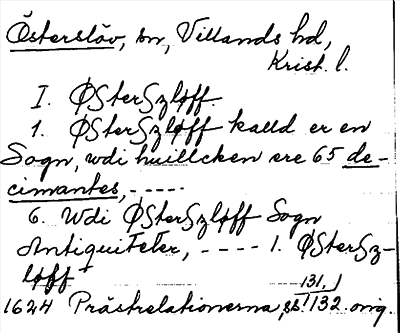 Österslöv, sn, Villands hd,
Krist. l.
I. ØSterSzløff.
1. ØSterSzløff kalld er en
Sogn, wdi huillcken ere 65 de-
cimantes, - - - - -
6. Wdi ØSterSzløff Sogn
Antiquiteter, - - - - 1. ØSterSz-
løff
131,
1624 Prästrelationerna, s. 132. orig.